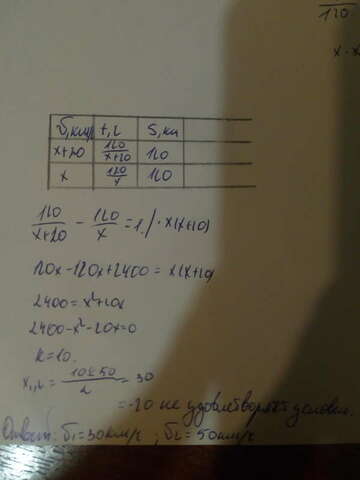 120
x · x
v, км/ч t, ч S, км
x+20 120/x+20 120
x 120/x 120
120/x+20 - 120/x = 1 / · x(x+20)
120x-120x+2400 = x(x+20)
2400 = x²+20x
2400-x²-20x=0
k=10.
x₁,₂ = 10±50/2 = 30
=-20 не удовлетворяет условию.
Ответ: v₁=30км/ч ; v₂=50км/ч